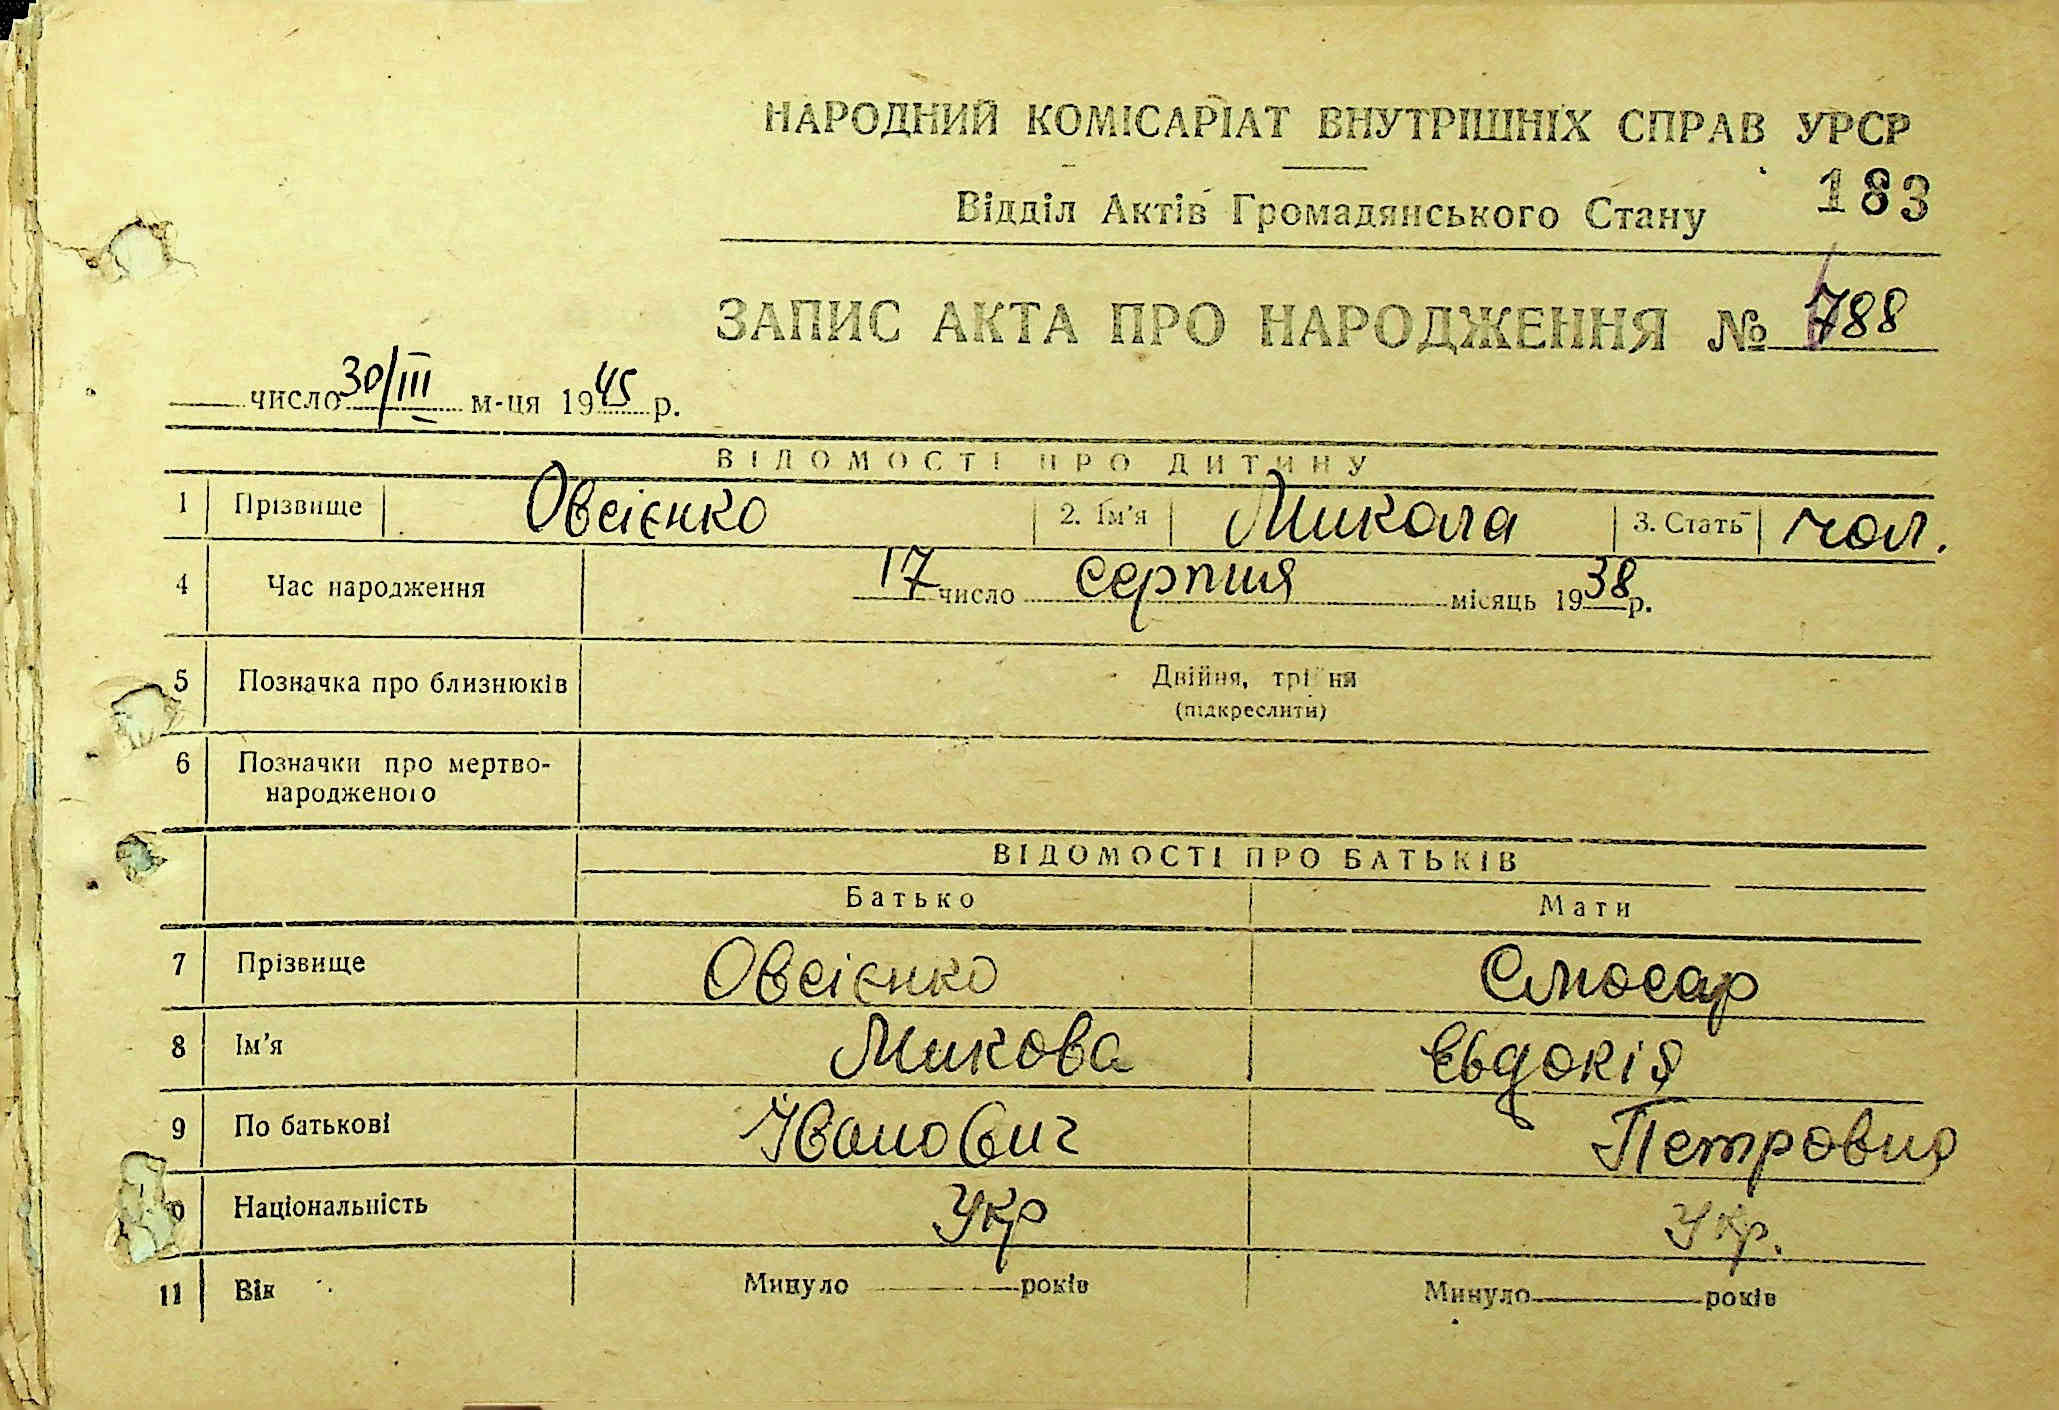 НАРОДНИЙ КОМІСАРІАТ ВНУТРІШНІХ СПРАВ УРСР
183
Відділ Актів Громадянського Стану
ЗАПИС АКТА ПРО НАРОДЖЕННЯ № 788
число 30/III м-ця 1945 р.
ВІДОМОСТІ ПРО ДИТИНУ
1 Прізвище Овсієнко 2. Ім'я Микола 3. Стать чол.
4 Час народження 17 число серпня місяць 1938 р.
5 Позначка про близнюків Двійня, трійня
(підкреслити)
6 Позначки про мертво-
народженого
ВІДОМОСТІ ПРО БАТЬКІВ
Батько Мати
7 Прізвище Овсієнко Слюсар
8 Ім'я Микова Євдокія
9 По батькові Іванович Петровна
Національність Укр Укр.
11 Вік Минуло років Минуло років